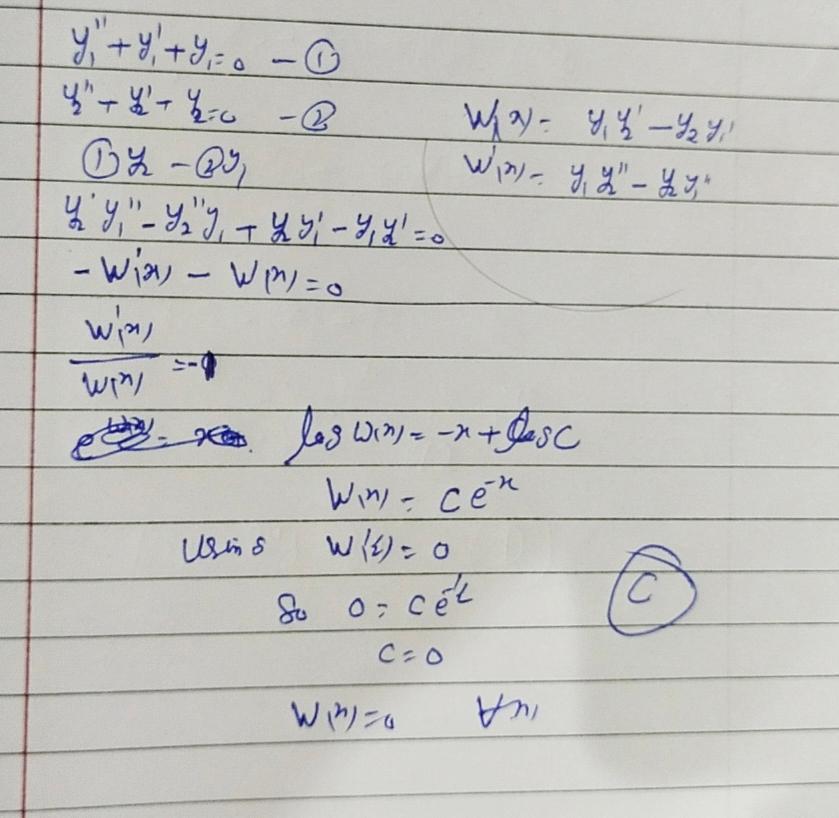 y₁'' + y₁' + y₁ = 0 — ①
y₂'' + y₂' + y₂ = 0 — ②
W(x) = y₁y₂' − y₂y₁'
① y₂ − ② y₁
W'(x) = y₁y₂'' − y₂y₁''
y₂ y₁'' − y₂'' y₁ + y₂ y₁' − y₁y₂' = 0
− W'(x) − W(x) = 0
W'(x)/W(x) = −1
log W(x) = −x + log C
W(x) = C e⁻ˣ
Using W(½) = 0
So 0 = C e^(−½)
C = 0
C
W(x) = 0 ∀ x